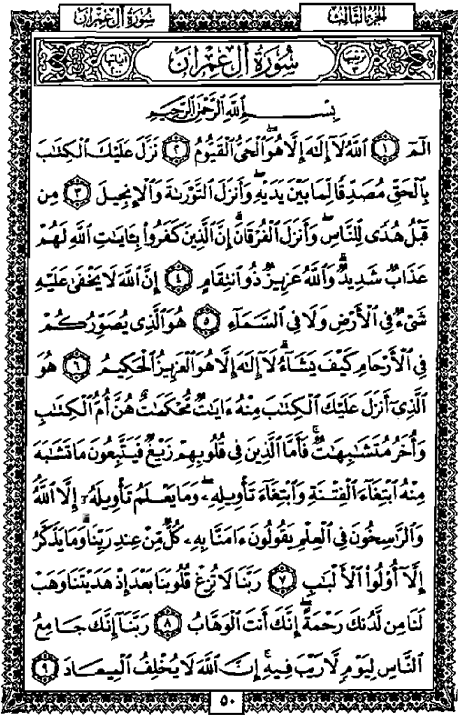 سُورَةُ آلِ عِمْرَانَ الجُزءُ الثَّالِثُ
آياتها ٢٠٠ سُورَةُ آلِ عِمْرَان ترتيبها ٣
بِسْمِ ٱللَّهِ ٱلرَّحْمَٰنِ ٱلرَّحِيمِ
الٓمٓ ۝١ ٱللَّهُ لَآ إِلَٰهَ إِلَّا هُوَ ٱلْحَىُّ ٱلْقَيُّومُ ۝٢ نَزَّلَ عَلَيْكَ ٱلْكِتَٰبَ
بِٱلْحَقِّ مُصَدِّقًا لِّمَا بَيْنَ يَدَيْهِ وَأَنزَلَ ٱلتَّوْرَىٰةَ وَٱلْإِنجِيلَ ۝٣ مِن
قَبْلُ هُدًى لِّلنَّاسِ وَأَنزَلَ ٱلْفُرْقَانَ ۗ إِنَّ ٱلَّذِينَ كَفَرُوا۟ بِـَٔايَٰتِ ٱللَّهِ لَهُمْ
عَذَابٌ شَدِيدٌ ۗ وَٱللَّهُ عَزِيزٌ ذُو ٱنتِقَامٍ ۝٤ إِنَّ ٱللَّهَ لَا يَخْفَىٰ عَلَيْهِ
شَىْءٌ فِى ٱلْأَرْضِ وَلَا فِى ٱلسَّمَآءِ ۝٥ هُوَ ٱلَّذِى يُصَوِّرُكُمْ
فِى ٱلْأَرْحَامِ كَيْفَ يَشَآءُ ۚ لَآ إِلَٰهَ إِلَّا هُوَ ٱلْعَزِيزُ ٱلْحَكِيمُ ۝٦ هُوَ
ٱلَّذِىٓ أَنزَلَ عَلَيْكَ ٱلْكِتَٰبَ مِنْهُ ءَايَٰتٌ مُّحْكَمَٰتٌ هُنَّ أُمُّ ٱلْكِتَٰبِ
وَأُخَرُ مُتَشَٰبِهَٰتٌ ۖ فَأَمَّا ٱلَّذِينَ فِى قُلُوبِهِمْ زَيْغٌ فَيَتَّبِعُونَ مَا تَشَٰبَهَ
مِنْهُ ٱبْتِغَآءَ ٱلْفِتْنَةِ وَٱبْتِغَآءَ تَأْوِيلِهِۦ ۗ وَمَا يَعْلَمُ تَأْوِيلَهُۥٓ إِلَّا ٱللَّهُ ۗ
وَٱلرَّٰسِخُونَ فِى ٱلْعِلْمِ يَقُولُونَ ءَامَنَّا بِهِۦ كُلٌّ مِّنْ عِندِ رَبِّنَا ۗ وَمَا يَذَّكَّرُ
إِلَّآ أُو۟لُوا۟ ٱلْأَلْبَٰبِ ۝٧ رَبَّنَا لَا تُزِغْ قُلُوبَنَا بَعْدَ إِذْ هَدَيْتَنَا وَهَبْ
لَنَا مِن لَّدُنكَ رَحْمَةً ۚ إِنَّكَ أَنتَ ٱلْوَهَّابُ ۝٨ رَبَّنَآ إِنَّكَ جَامِعُ
ٱلنَّاسِ لِيَوْمٍ لَّا رَيْبَ فِيهِ ۚ إِنَّ ٱللَّهَ لَا يُخْلِفُ ٱلْمِيعَادَ ۝٩
٥٠